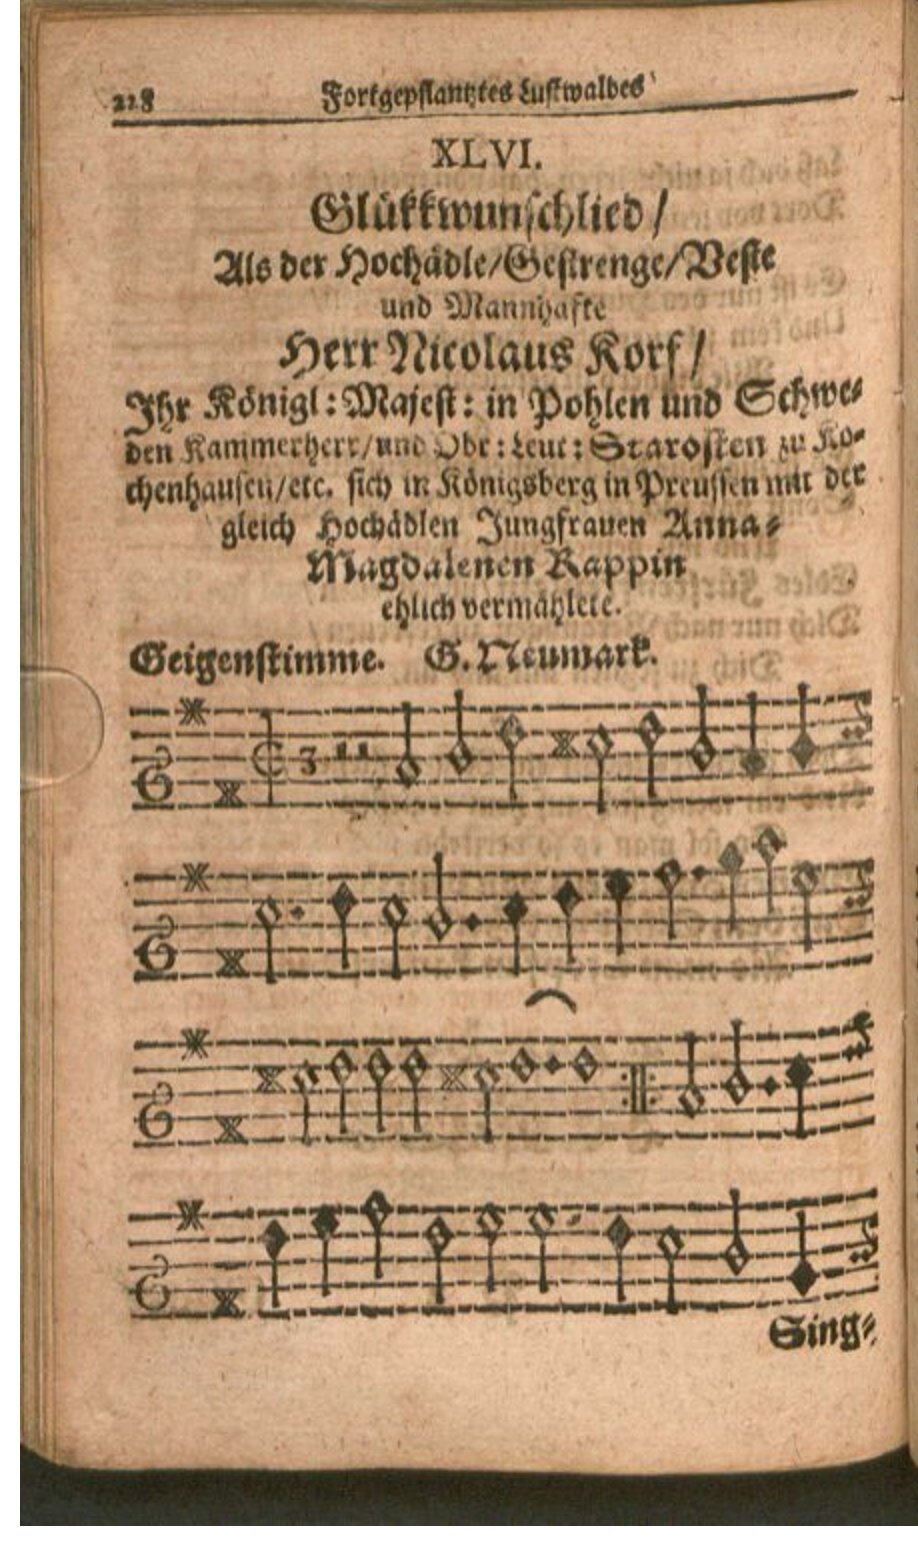 228 Fortgepflantztes Lustwaldes
XLVI.
Glükkwunschlied /
Als der Hochädle/Gestrenge/Veste
und Mannhafte
Herr Nicolaus Korf /
Ihr Königl: Majest: in Pohlen und Schwe⸗
den Kammerherr/und Obr: Leut: Starosten zu Ko⸗
chenhausen/etc. sich in Königsberg in Preussen mit der
gleich Hochädlen Jungfrauen Anna⸗
Magdalenen Rappin
ehlich vermählete.
Geigenstimme. G. Neumark.
Sing⸗